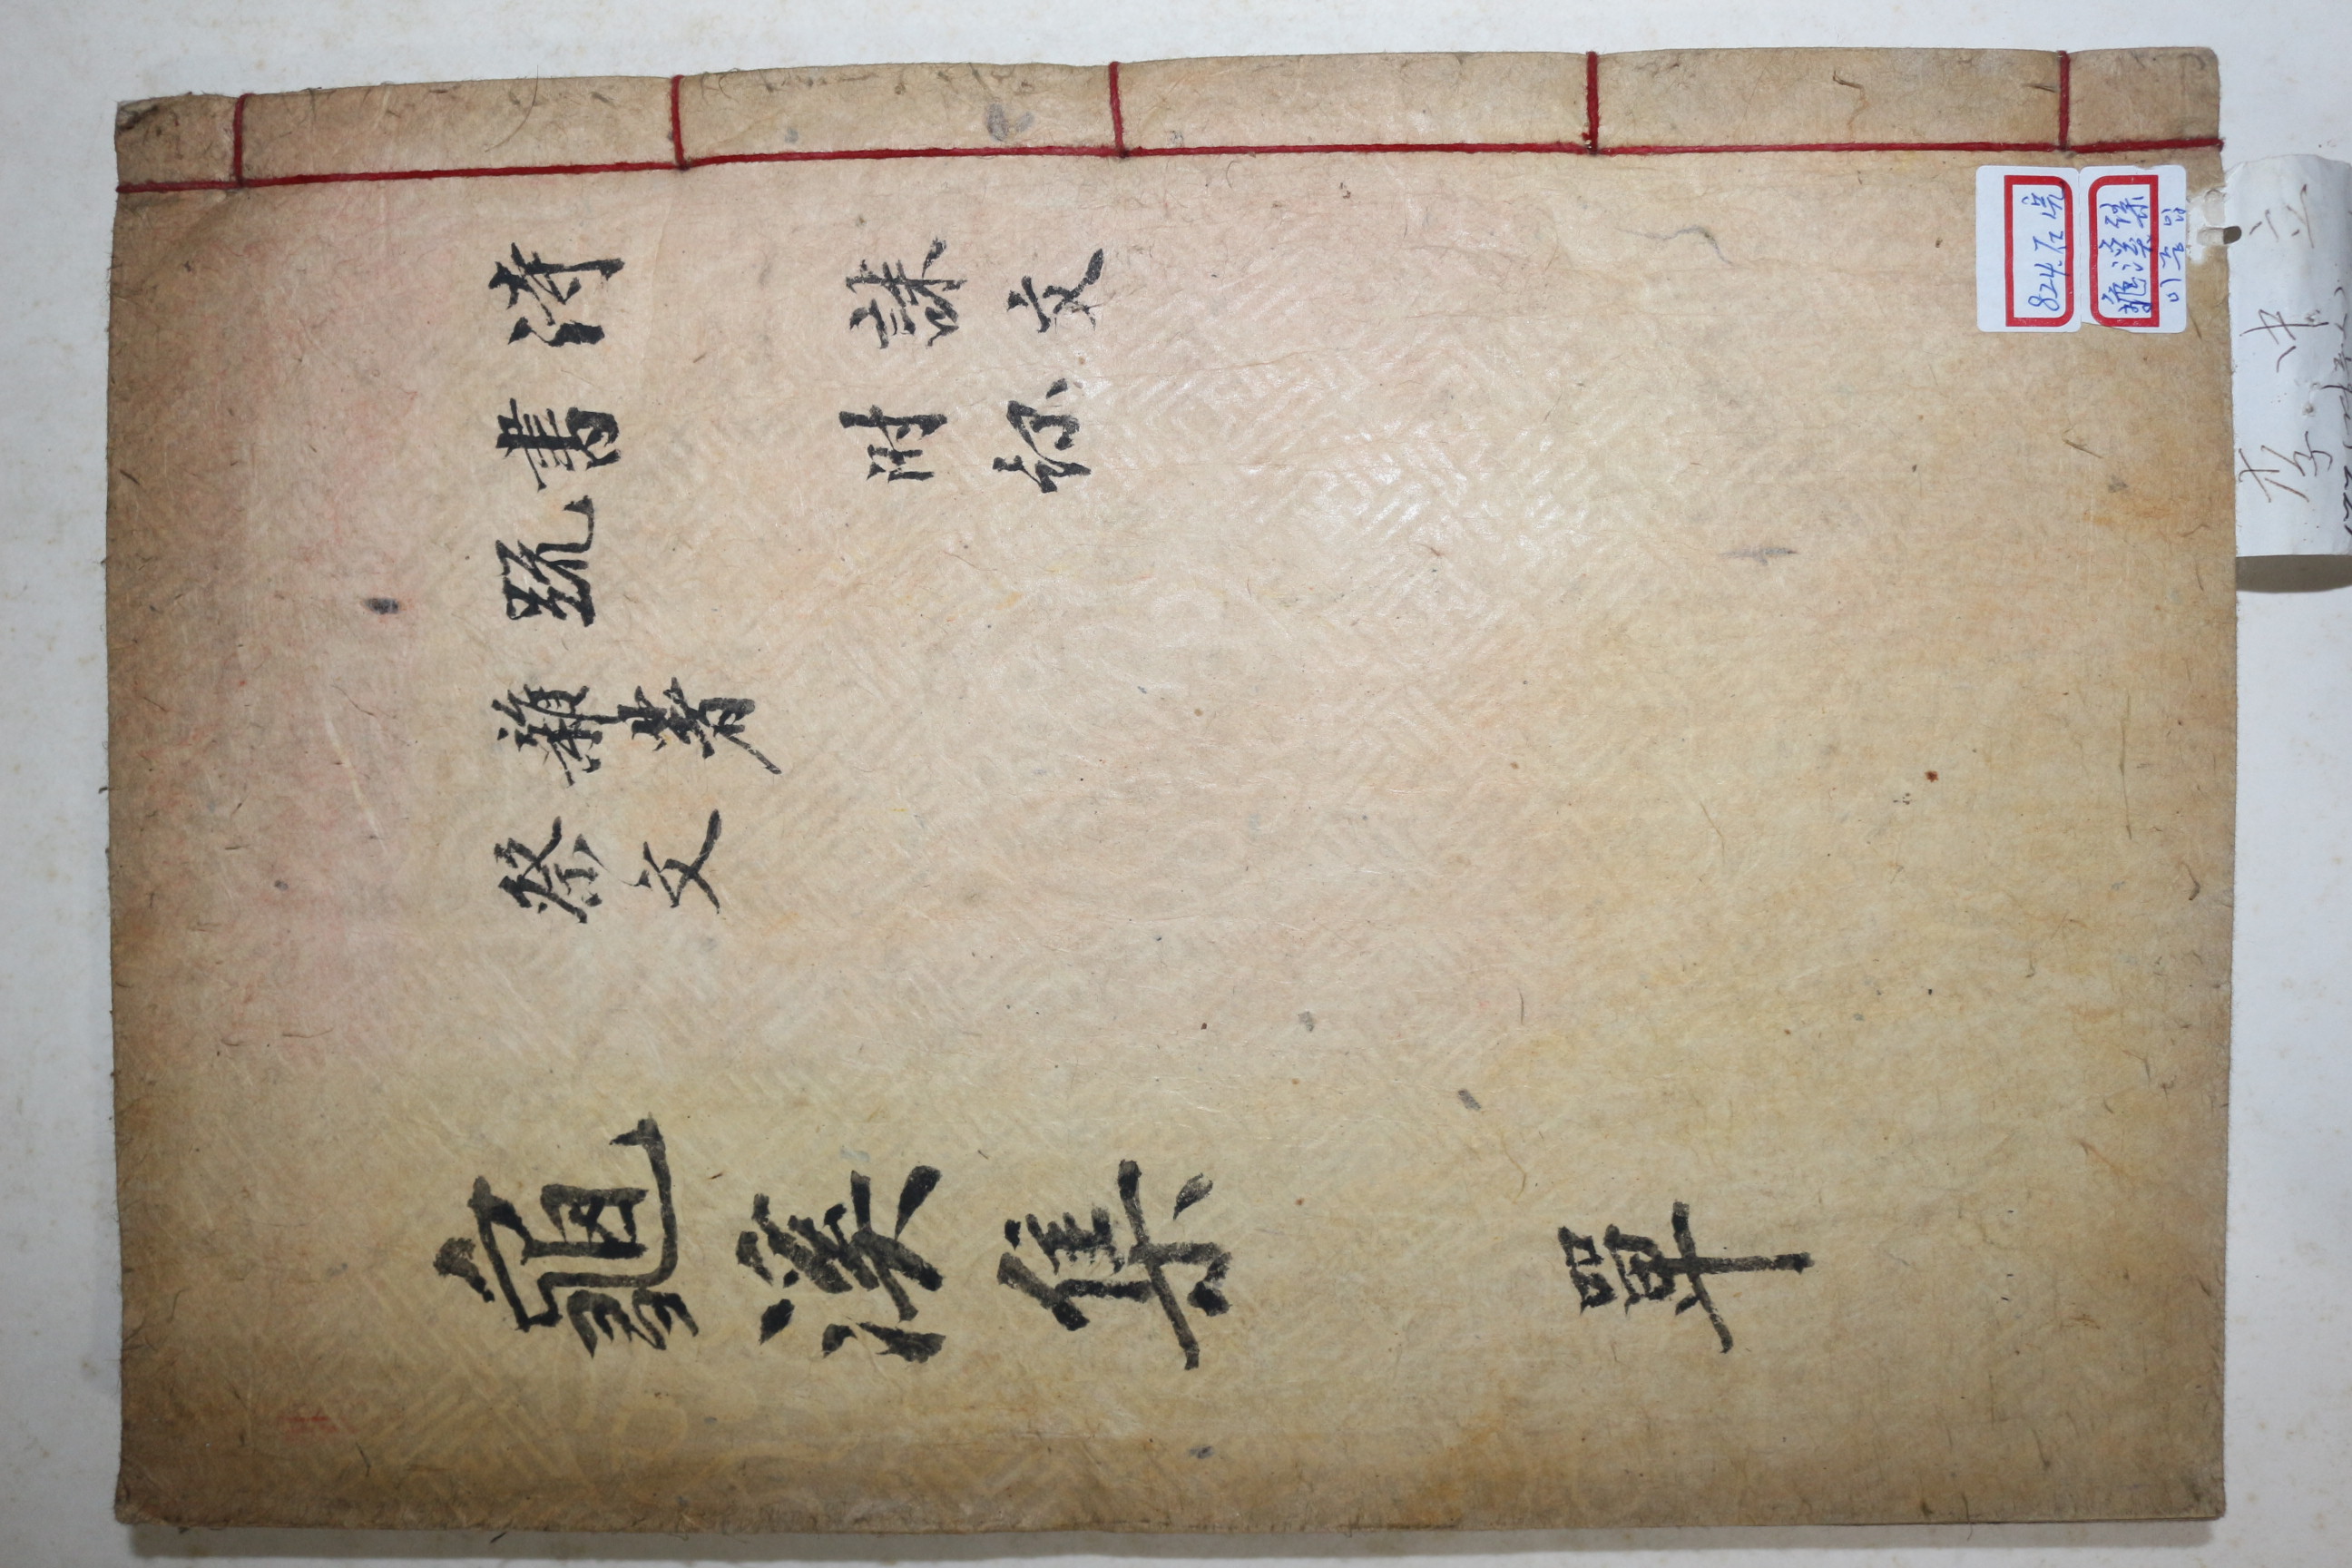 詩
書
疏
雜著
祭文
誄文
附録
龜溪集 單
824.石宲
龜溪集
이중립
李中立